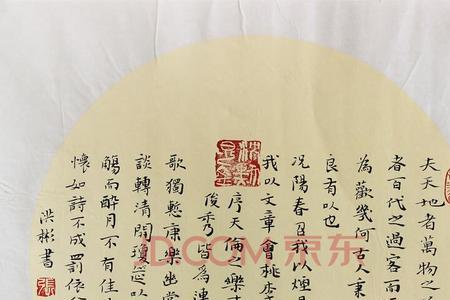 夫天地者萬物之
者百代之過客而
為歡幾何古人秉
良有以也
況陽春召我以煙
我以文章會桃李
序天倫之樂
俊秀皆為
歌獨慙康樂幽
談轉清開瓊筵以
觴而醉月不有佳
懷如詩不成罰依
洪彬書
JD.COM 京东